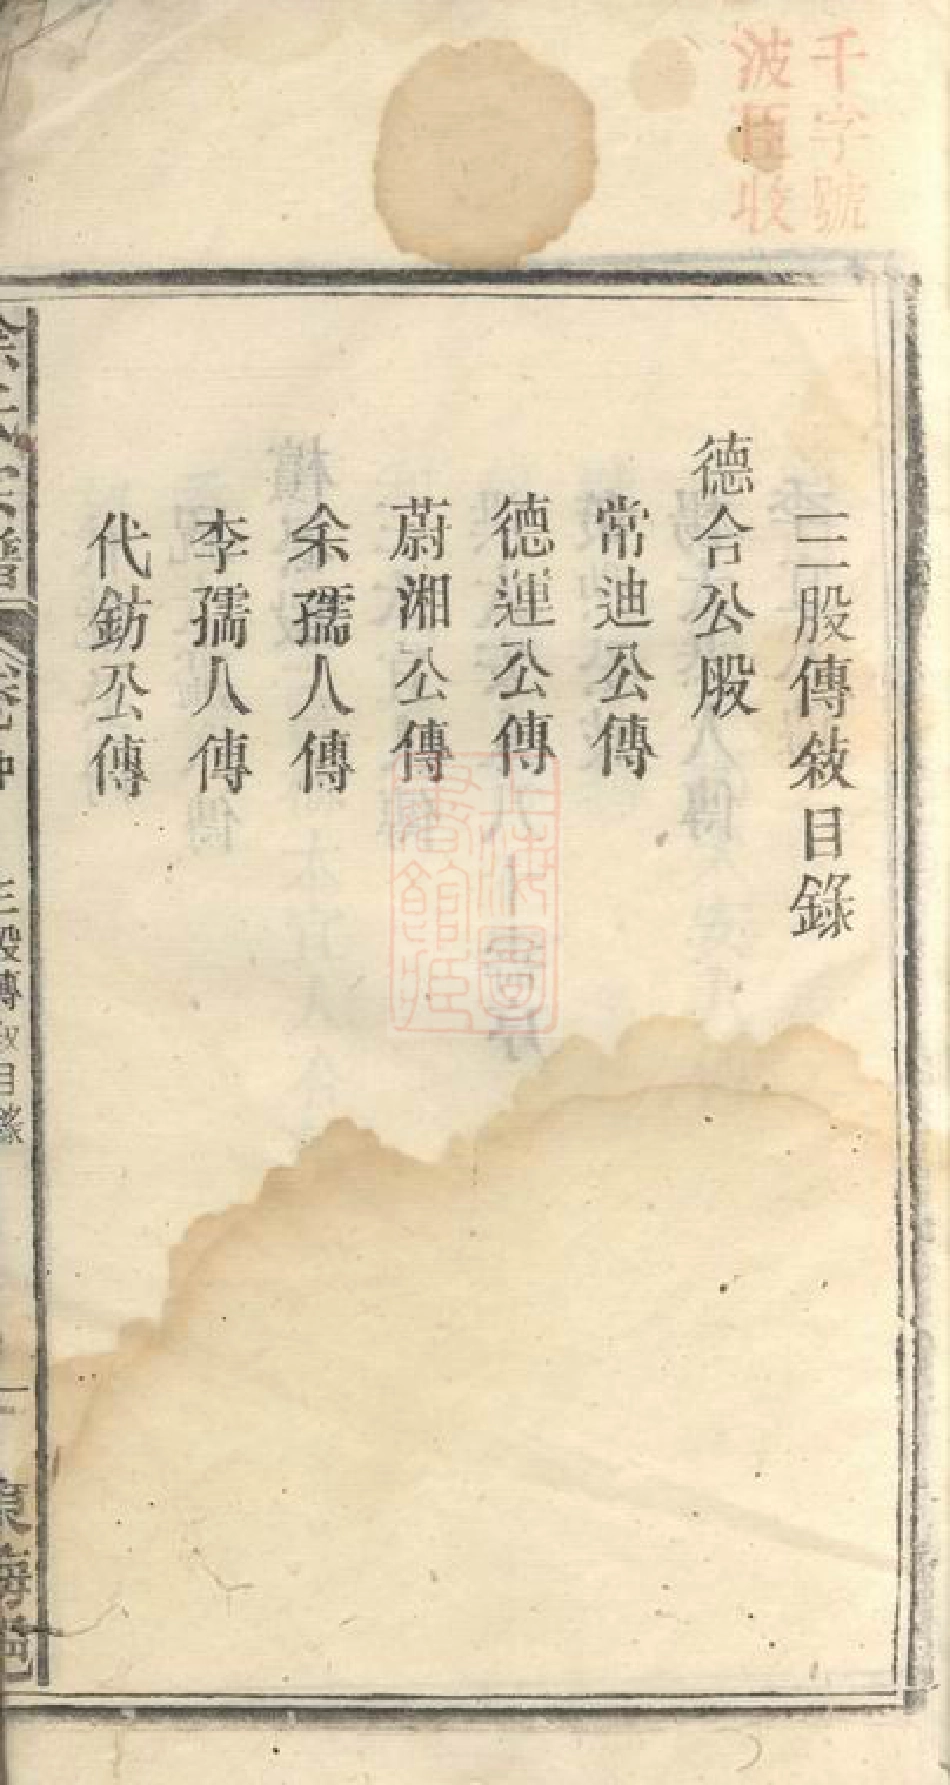 千字號
波臣收
三股傳敘目錄
德合公股
常迪公傳
德運公傳
蔚湘公傳
余孺人傳
李孺人傳
代鈁公傳
三股傳敘目錄
上海圖書館藏